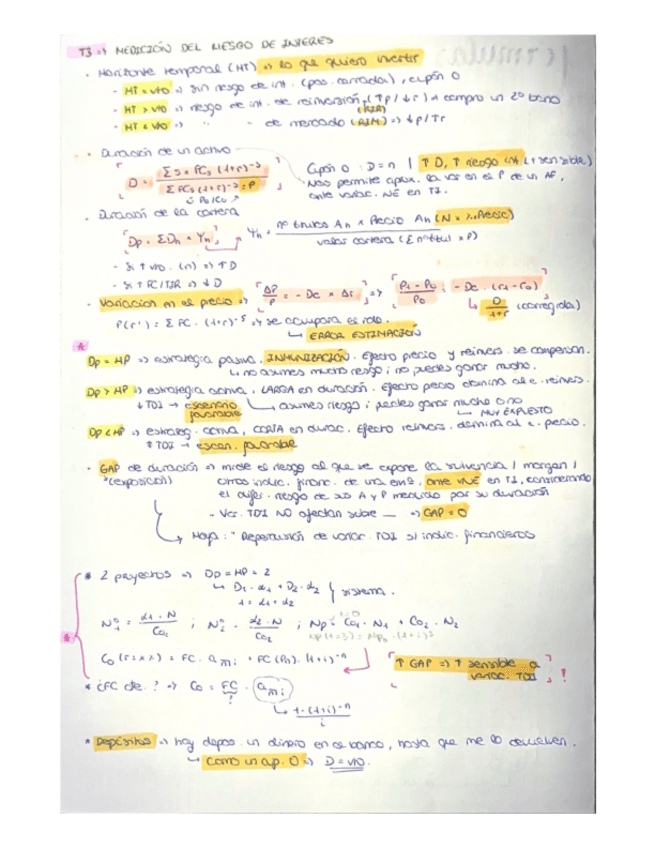 T3 => MEDICIÓN DEL RIESGO DE INTERÉS
· Horizonte temporal (HT) => lo que quiero invertir
- HT = vto => sin riesgo de int. (pas. cerrada), cupón 0
- HT > vto => riesgo de int. de reinversión (↑P/↓r) → compro un 2º bono
(RIR)
- HT < vto => " " - de mercado (RIM) => ↓P/↑r
· Duración de un activo
D = Σ s × FCs (1+r)^-s / Σ FCs (1+r)^-s = P
↳ Po/Co ↗
Cupón 0 : D = n | ↑ D, ↑ riesgo int (+ sensible)
Nos permite aprox. la var en el P de un AF,
ante variac. NE en TI.
· Duración de la cartera
Dp = Σ Dn × Yn
Yn = nº títulos An × Precio An (N × Precio) / valor cartera (Σ nº títul × P)
- si ↑ vto. (n) => ↑ D
- si ↑ FC/TIR => ↓ D
· Variación en el precio => ΔP/P = - Dc × Δr => P1 - P0 / P0 = - Dc · (r1 - r0)
↳ D/1+r (corregida)
P(r') = Σ FC · (1+r)^-s => se compara es rdo.
↳ ERROR ESTIMACIÓN
Dp = HP => estrategia pasiva. INMUNIZACIÓN. Efecto precio y reinvers. se compensan.
↳ no asumes mucho riesgo; no puedes ganar mucho.
Dp > HP => estrategia activa, LARGA en duración. Efecto precio domina al e. reinvers.
↓ TDI → escenario favorable
↳ asumes riesgo; puedes ganar mucho o no
↳ MUY EXPUESTO
Dp < HP => estrateg. activa, CORTA en durac. Efecto reinvers. domina al e. precio.
↑ TDI → escen. favorable
· GAP de duración => mide el riesgo al que se expone la solvencia / margen /
(exposición) otros indic. financ. de una emp, ante VNE en TI, considerando
el difer. riesgo de sus A y P medido por su duración
- Var. TDI NO afectan sobre — => GAP = 0
↳ Moya: " Repercusión de variac. TDI s/ indic. financieros
* 2 proyectos => Dp = HP = 2
↳ D1 · α1 + D2 · α2 } sistema.
1 = α1 + α2
N1 = α1 · N / Co1 ; N2 = α2 · N / Co2 ; Np = Co1 · N1 + Co2 · N2
Np(t=3) = Np0 · (1+i)^3
Co (r = x%) = FC · a n¬i + FC (Pn) · (1+i)^-n
↑ GAP => ↑ sensible a variac. TDI !
* ¿FC de ? => Co = FC · a n¬i
?
↳ 1 - (1+i)^-n / i
* Depósitos => hay depos. un dinero en el banco, hasta que me lo devuelven.
↳ como un cup. 0 => D = vto.